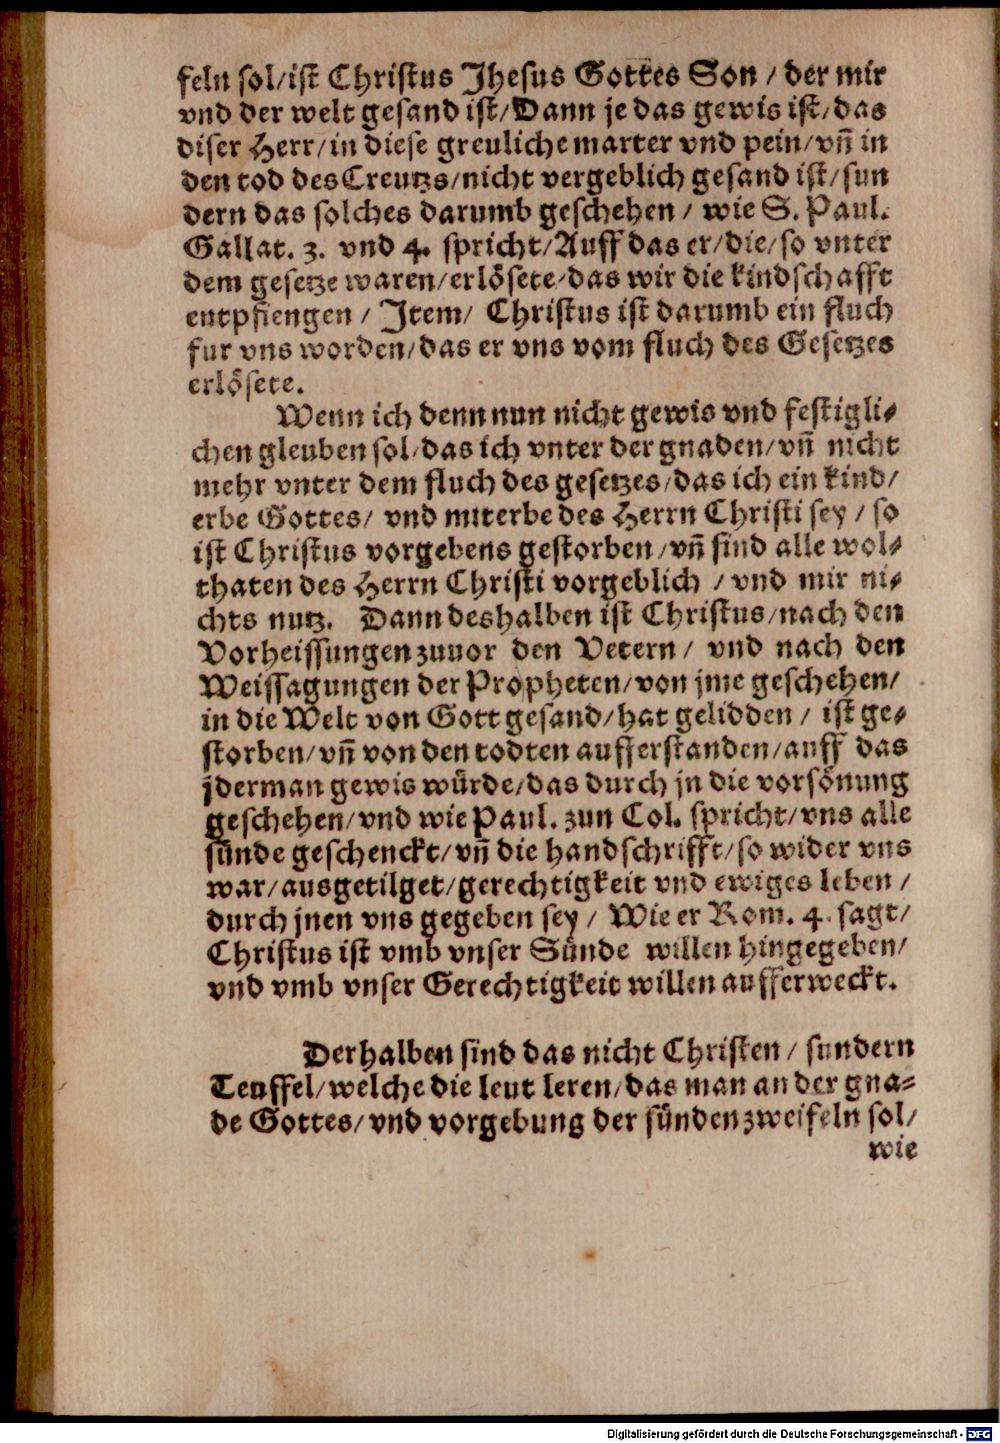 feln sol/ist Christus Jhesus Gottes Son / der mir
vnd der welt gesand ist/Dann je das gewis ist/das
diser Herr/in diese greuliche marter vnd pein/vn̄ in
den tod des Creutzs/nicht vergeblich gesand ist/sun
dern das solches darumb geschehen / wie S. Paul.
Gallat. 3. vnd 4. spricht/Auff das er/die/so vnter
dem gesetze waren/erlösete/das wir die kindschafft
entpfiengen / Item/ Christus ist darumb ein fluch
fur vns worden/das er vns vom fluch des Gesetzes
erlösete.
Wenn ich denn nun nicht gewis vnd festigli⸗
chen gleuben sol/das ich vnter der gnaden/vn̄ nicht
mehr vnter dem fluch des gesetzes/das ich ein kind/
erbe Gottes/ vnd miterbe des Herrn Christi sey / so
ist Christus vorgebens gestorben/vn̄ sind alle wol⸗
thaten des Herrn Christi vorgeblich / vnd mir ni⸗
chts nutz. Dann deshalben ist Christus/nach den
Vorheissungen zuuor den Vetern/ vnd nach den
Weissagungen der Propheten/von jme geschehen/
in die Welt von Gott gesand/hat gelidden / ist ge⸗
storben/vn̄ von den todten aufferstanden/auff das
jderman gewis würde/das durch jn die vorsönung
geschehen/vnd wie Paul. zun Col. spricht/vns alle
sünde geschenckt/vn̄ die handschrifft/so wider vns
war/ausgetilget/gerechtigkeit vnd ewiges leben /
durch jnen vns gegeben sey / Wie er Rom. 4. sagt/
Christus ist vmb vnser Sünde willen hingegeben/
vnd vmb vnser Gerechtigkeit willen aufferweckt.
Derhalben sind das nicht Christen / sundern
Teuffel/welche die leut leren/das man an der gna⸗
de Gottes/vnd vorgebung der sünden zweifeln sol/
wie
Digitalisierung gefördert durch die Deutsche Forschungsgemeinschaft - DFG